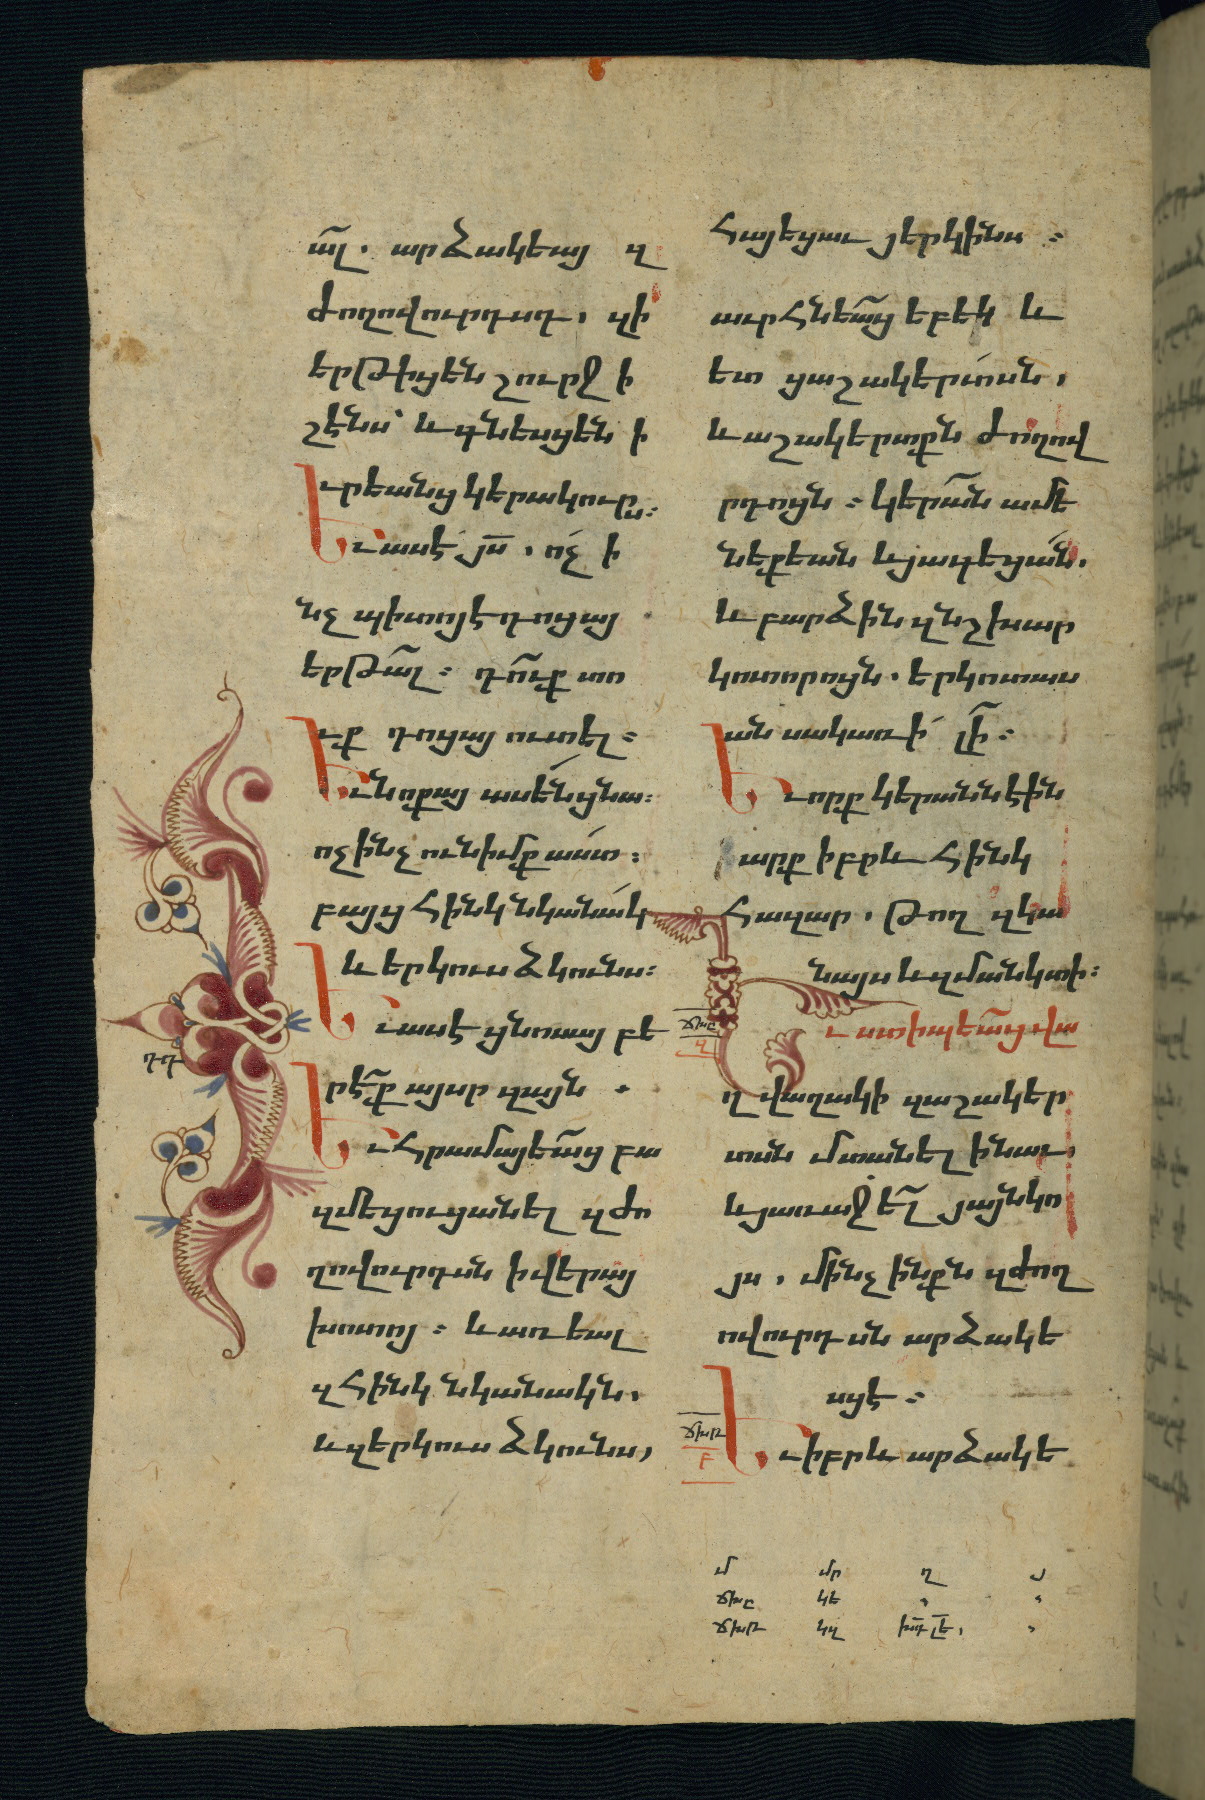 ա՟լ. արձակեայ զ
ժողովուրդսդ, զի
երթիցեն շուրջ ի
շէնս՝ և գնեսցեն ի
ւրեանց կերակուրս։
Եւ ասէ յս՟, ոչ ի
նչ պիտոյ է դոցայ
երթա՟լ։ դո՟ւք տո
ւք դոցայ ուտել։
Եւ նոքայ ասեն ցնա։
ոչ ինչ ունիմք աստ։
բայց հինկ նկանակ
և երկուս ձկունս։
Եւ ասէ ցնոսայ բե
րէ՟ք այսր զայն.
Եւ հրամայեա՟ց բա
զմեցուցանել զժո
ղովուրդսն ի վերայ
խոտոյ։ և առեալ
զհինկ նկանակն,
և զերկուս ձկունս,
դդ
հայեցաւ յերկինս։
աւրհնեա՟ց եբեկ և
ետ ցաշակերտսն,
և աշակերտքն ժողով
րդոյն։ կերա՟ն ամէ
նեքեան և յագեցան.
և բարձին զնշխար
կոտորոյն. երկոտաս
ան սակառի լի՟։
Եւ որք կերանն էին
արք իբրև հինկ
հազար, թող զկա
նայս և զմանկտի։
Եւ ստիպեա՟ց վա
ղ վաղակի զաշակեր
տսն մտանել ի նաւ,
և յառաջել՟ յայնկո
յս, մինչ ինքն զժող
ովուրդսն արձակե
սցէ։
Եւ իբրև արձակե
ճխը
զ
ճխթ
բ
մ մր ղ յ
ճխը կե
ճխթ կզ խգ լե,